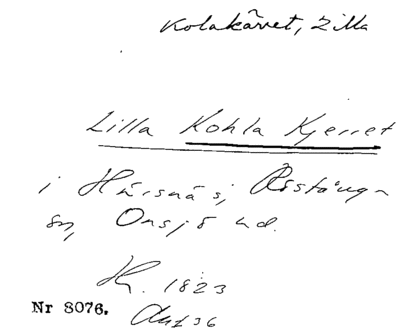 Kolakärret, Lilla
Lilla Kohla Kjerret
i Härsnäs, Röstånga
sn, Onsjö hd.
1823
Nr 8076.
36